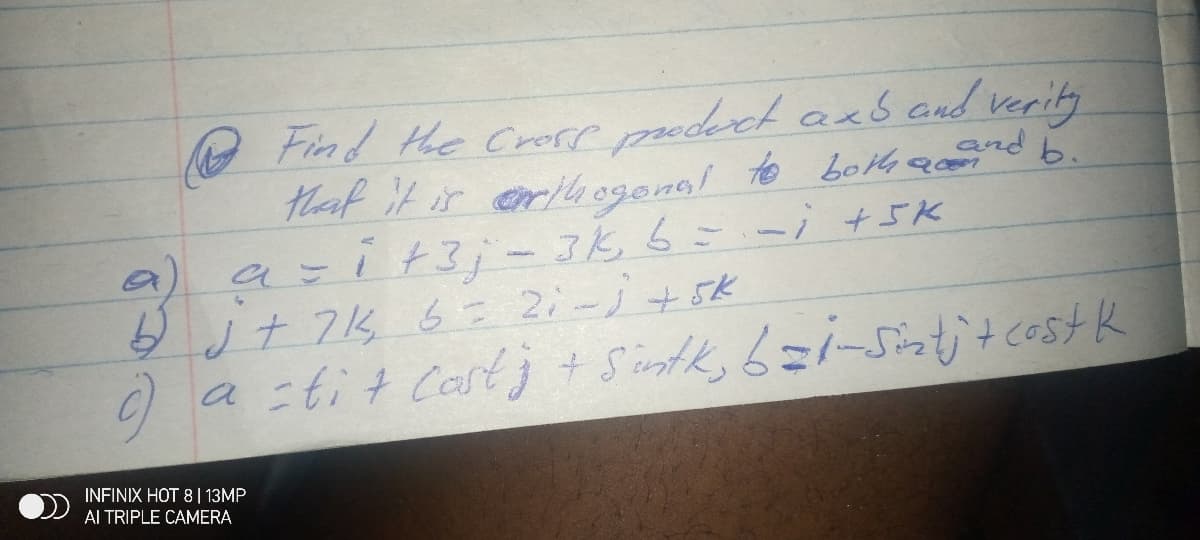 Find the Cross product axb and verify
that it is orthogonal to both a and b.
a) a = i + 3j - 3k, b = -i + 5k
b) j + 7k, b = 2i - j + 5k
c) a = ti + Costj + Sintk, b = i - Sintj + Costk
INFINIX HOT 8 | 13MP
AI TRIPLE CAMERA